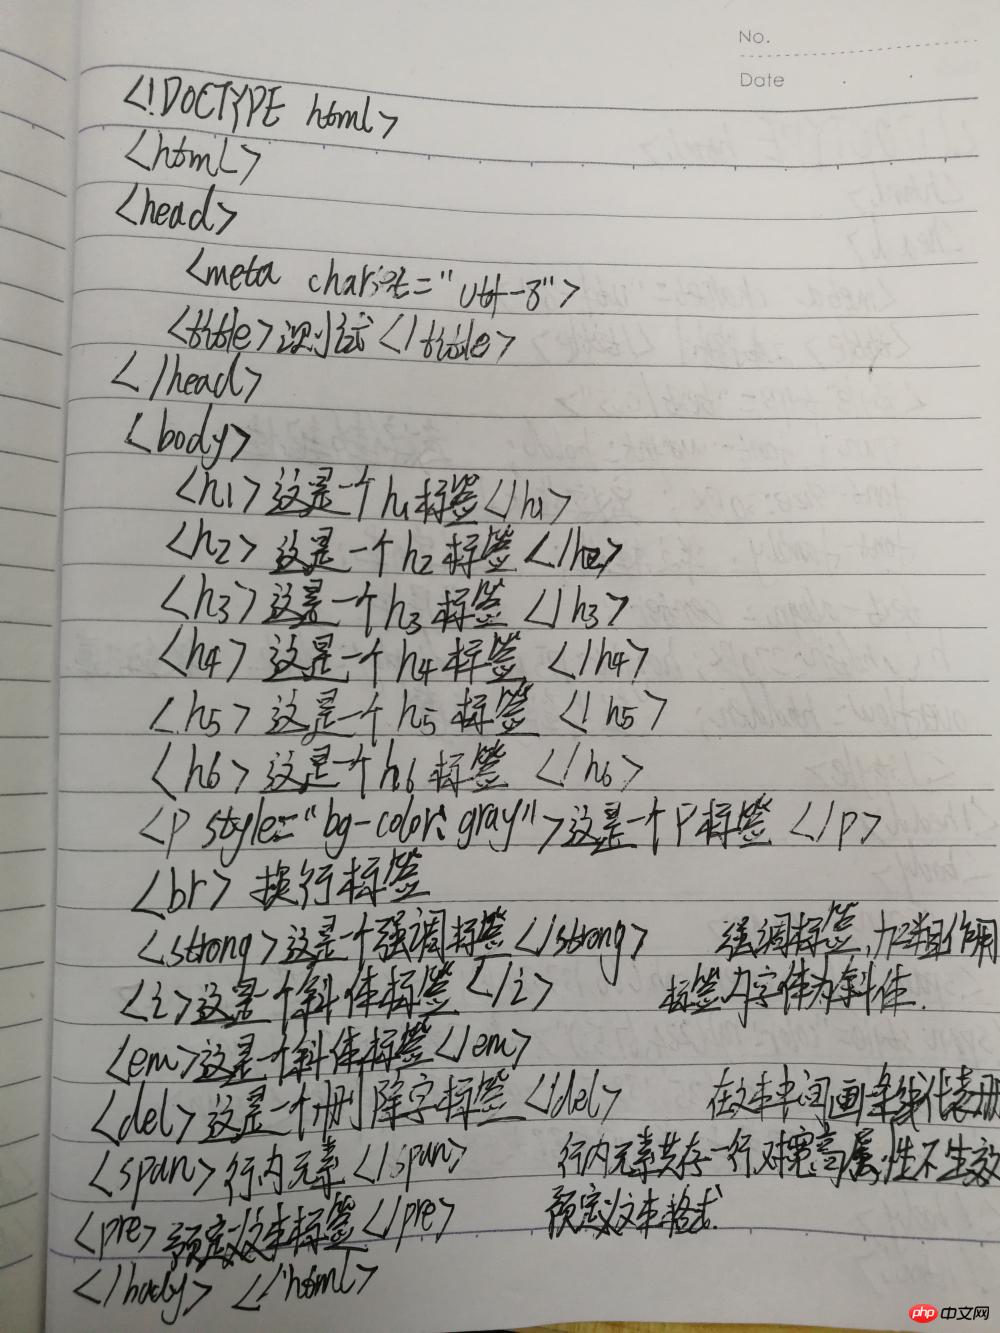 No.
Date
<!DOCTYPE html>
<html>
<head>
<meta charset="utf-8">
<title>测试</title>
</head>
<body>
<h1>这是一个h1标签</h1>
<h2>这是一个h2标签</h2>
<h3>这是一个h3标签</h3>
<h4>这是一个h4标签</h4>
<h5>这是一个h5标签</h5>
<h6>这是一个h6标签</h6>
<p style="bg-color:gray">这是一个P标签</p>
<br>换行标签
<strong>这是一个强调标签</strong> 强调标签,加粗作用
<i>这是一个斜体标签</i> 标签内字体为斜体.
<em>这是一个斜体标签</em>
<del>这是一个删除字标签</del> 在文本中间画条线代表删
<span>行内元素</span> 行内元素共存一行对宽高属性不生效
<pre>预定义文本标签</pre> 预定义文本格式.
</body> </html>
php 中文网